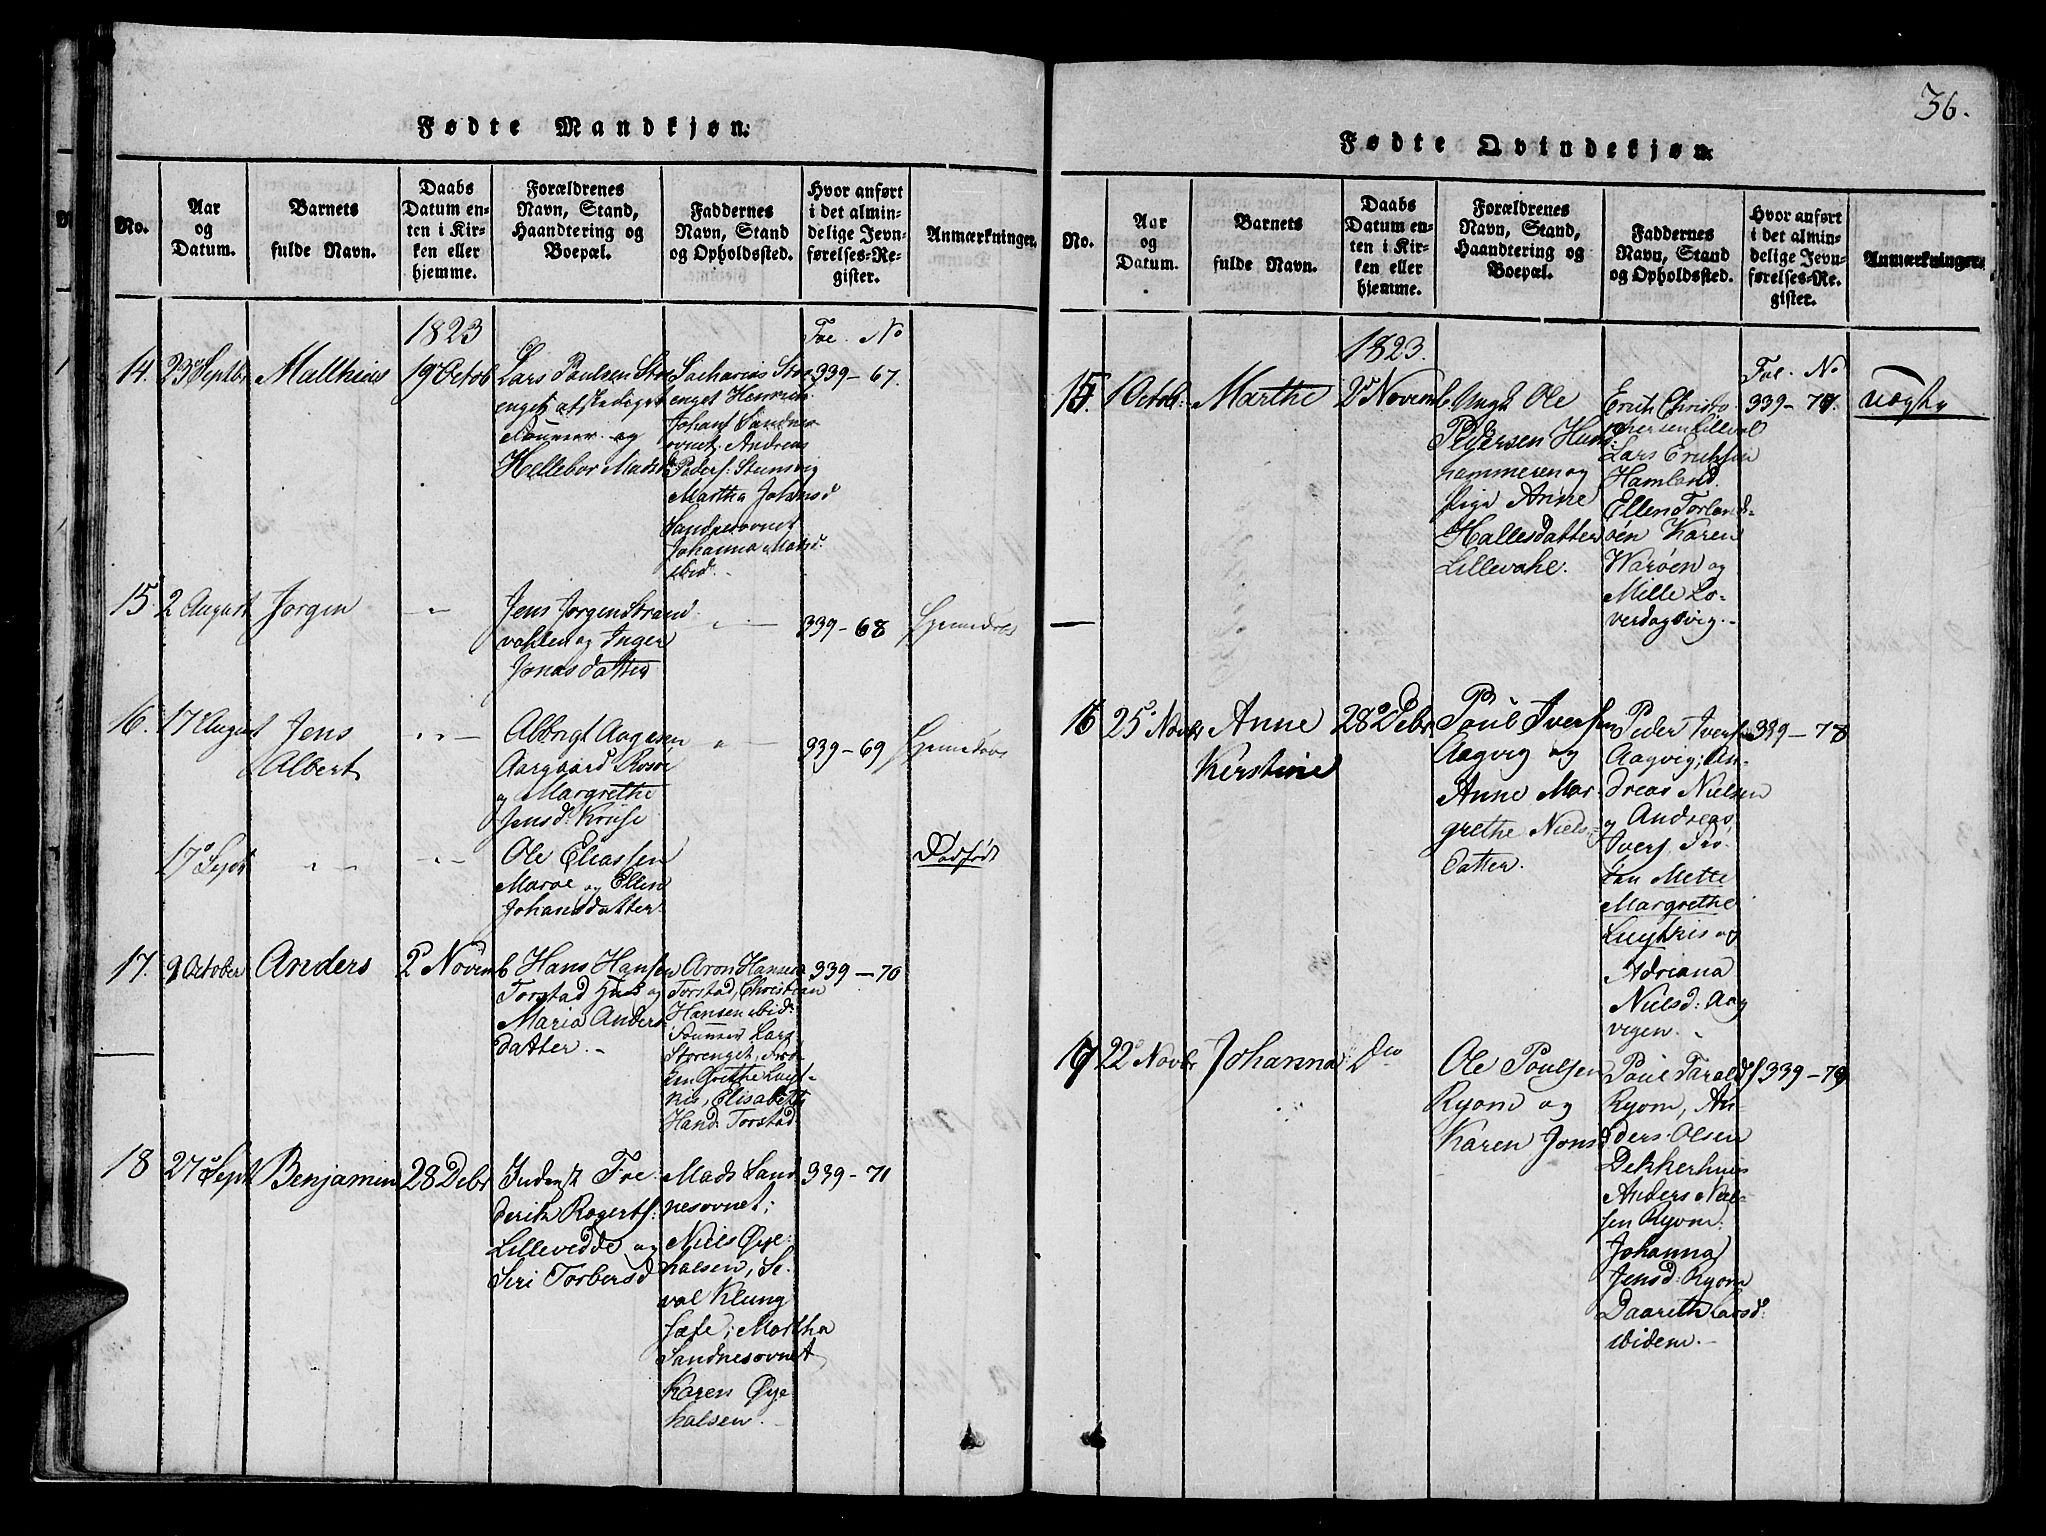 36.
Fødte Mandkjøn.
No.
Aar
og
Datum.
Barnets
fulde Navn.
Daabs
Datum en-
ten i Kir-
ken eller
hjemme.
Forældrenes
Navn, Stand,
Haandtering og
Boepæl.
Faddernes
Navn, Stand
og Opholdssted.
Hvor anført
i det almin-
delige Jevn-
førelses-Re-
gister.
Anmærkninger.
1823
Foe. No
14. 23 Septbr Matthias 19 Octob
Lars Paulsen Stor
enget afskediget
og
Hellebor Madsd
Zacharias Stor
enget Henrich
Johans Sandnes
ovnet. Andreas
Peders: Stumsvig
Martha Johansd
Sandnesovnet
Johanna Matsd.
ibid.
339-67.
15 2 August Jørgen
Jens Jørgen Strand
vahlen og Inger
Jonasdatter
339-68 Hjemedøbt
16. 17 August Jens
Albert
Albrigt Aagesen
Aargaard Rosoe
og Margrethe
Jensd: Kruse
339-69 Hjemedøbt
17 Sept
Ole Eliassen
Maroe og Ellen
Johansdatter
Dødfødt
17. 9 October Anders 2 Novemb
Hans Hansen
Torstad Huus og
Maria Anders
datter.
Aron Hansen
Torstad, Christian
Hansen ibid:
Lars
Storenget,
Grethe Luyt-
kis, Elisabeth
Hansd Torstad
339-70
18 27 Sept Benjamin 28 Debr
Inderst Fre
derik Rogerts:
Lillevedde og
Siri Torbersd
Mads Sand
nesovnet;
Niels Øye
halsen, Si-
val Klung
sæte; Martha
Sandnesovnet
Karen Øye
halsen.
339-71
Fødte Qvindekjøn.
No.
Aar
og
Datum.
Barnets
fulde Navn.
Daabs
Datum en-
ten i Kir-
ken eller
hjemme.
Forældrenes
Navn, Stand,
Haandtering og
Boepæl.
Faddernes
Navn, Stand
og Opholdssted.
Hvor anført
i det almin-
delige Jevn-
førelses-Re-
gister.
Anmærkninger.
1823.
Foe. No
15. 1 Octob: Marthe 2 Novemb
Ungk Ole
Pedersen Huns
hammeren og
Pige Anne
Hallesdatter
Lillevahl.
Erich Christo
phersen Lillevol
Lars Ericksen
Hamland.
Ellen Torland-
øen Karen
Warøen og
Mille Lo-
verdagsvig.
339-77. uægte
16 25 Novbr Anne
Kerstine
28 Debr
Poul Iversen
Aagvig og
Anne Mar-
grethe Niels-
datter.
Peder Iversen
Aagvig; An-
dreas Nielsen
og Andreas
Ivers, Fro-
ken Mette
Margrethe
Luytkis og
Adriana
Nielsd: Aag
vigen.
339-78
17 22 Novbr Johanna Do
Ole Poulsen
Ryom og
Karen Jonsd
Poul Taralds
Ryom, An-
ders Olsen
Dekkerhuus
Anders Niel-
sen Ryom.
Johanna
Jensd: Ryom
Daareth Larsd:
ibidem.
339-79